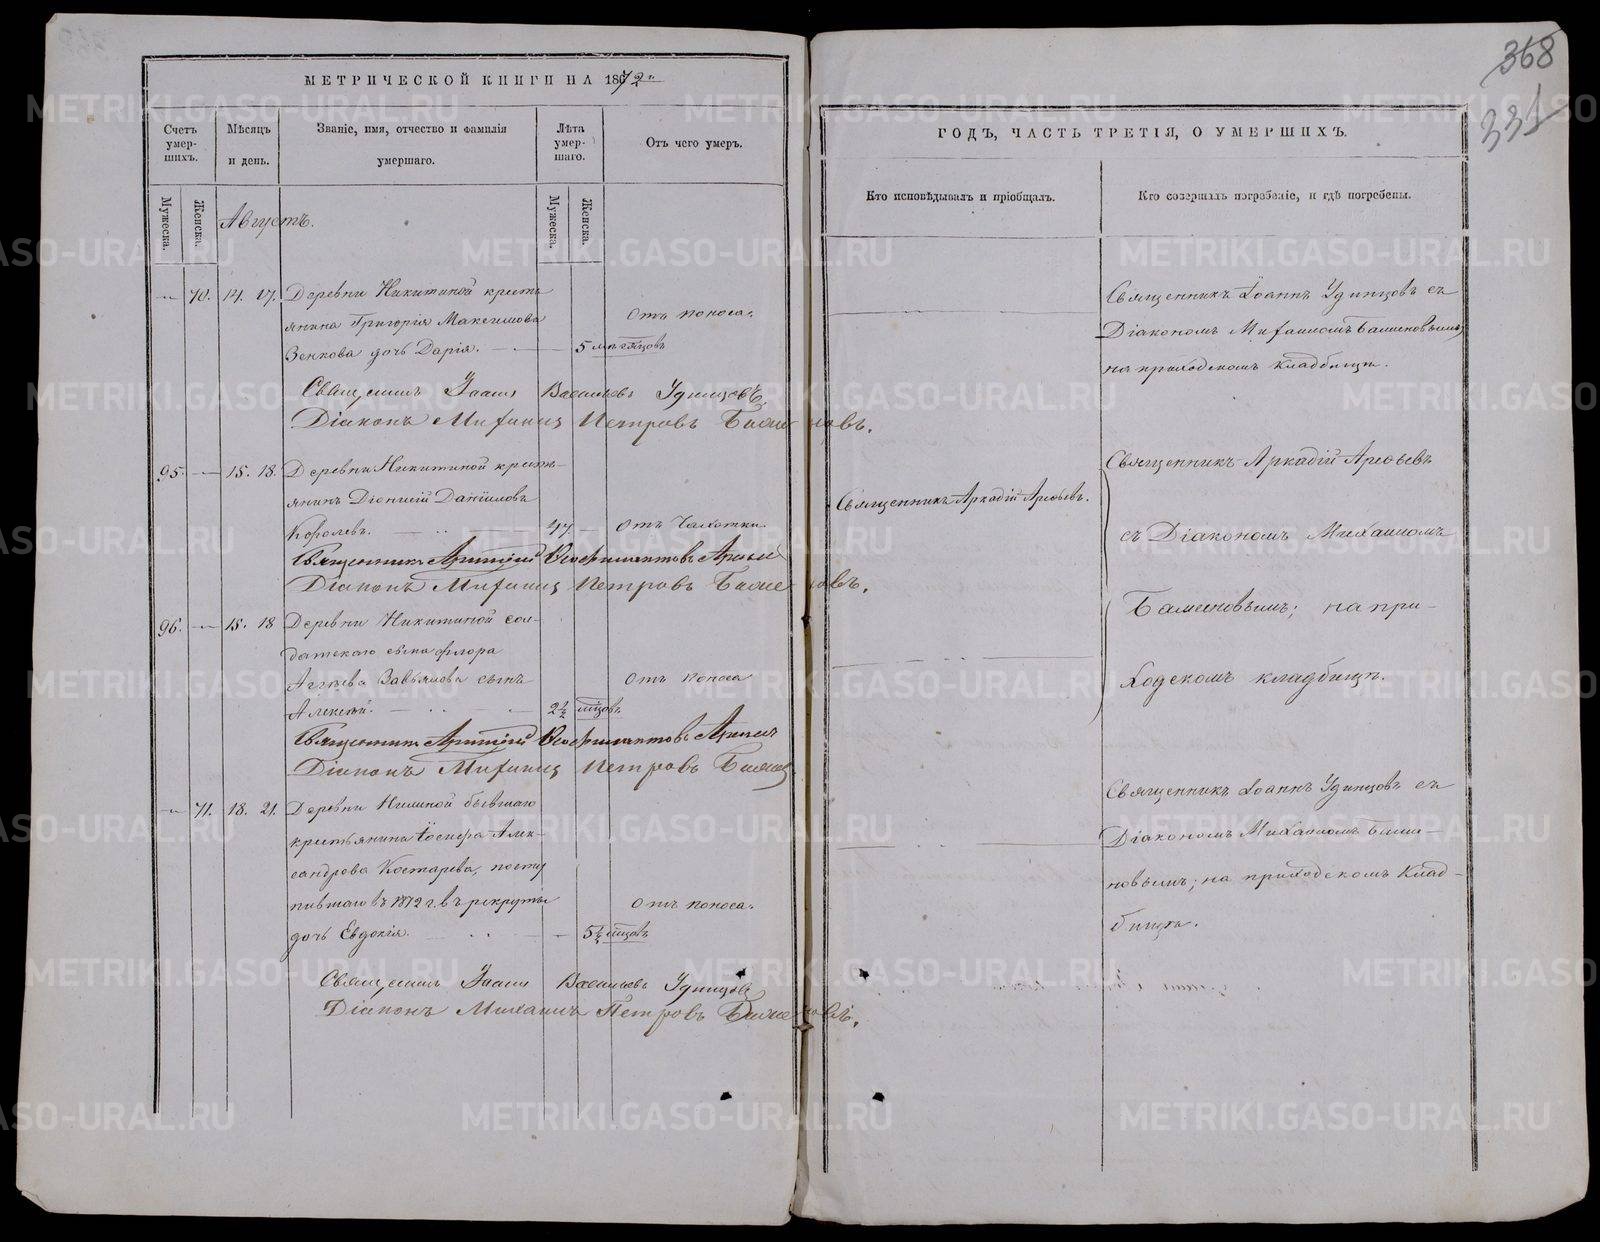 МЕТРИЧЕСКОЙ КНИГИ НА 1872й
Счетъ умер-шихъ.
Мѣсяцъ и день.
Званіе, имя, отчество и фамилія умершаго.
Лѣта умер-шаго.
Отъ чего умеръ.
Мужеска.
Женска.
Мужеска.
Женска.
Августъ.
— 70. 14. 17. Деревни Никитиной кресть
янина Григорія Максимова
Отъ поноса.
Зенкова дочь Дарія. — 5 мѣсяцовъ
Священникъ Іоаннъ Васильевъ Удинцовъ
Діаконъ Михаилъ Петровъ Баженовъ.
95. — 15. 18. Деревни Никитиной кресть-
янинъ Діонисій Даніиловъ
Королевъ. — 47 — Отъ Чахотки.
Священникъ Аркадій Арефьев
Діаконъ Михаилъ Петровъ Баженовъ.
96. — 15. 18 Деревни Никитиной сол-
датскаго сына Флора
Аггѣева Завьялова сынъ
Отъ поноса
Алексѣй. — 2½ мѣсцовъ
Священникъ Аркадій Арефьев
Діаконъ Михаилъ Петровъ Баженов
— 71. 18. 21. Деревни бывшаго
крестьянина Іосифа Алек-
сандрова Костарева, посту
пившаго въ 1872 г. въ рекруты
Отъ поноса.
дочь Евдокія. — 5½ мѣсцовъ
Священникъ Іоаннъ Васильевъ Удинцовъ
Діаконъ Михаилъ Петровъ Баженовъ.
368
331
ГОДЪ, ЧАСТЬ ТРЕТІЯ, О УМЕРШИХЪ.
Кто исповѣдывалъ и пріобщалъ.
Кто совершалъ погребеніе, и гдѣ погребены.
Священникъ Іоаннъ Удинцовъ съ
Діакономъ Михаиломъ Баженовымъ
на приходскомъ кладбищѣ.
Священникъ Аркадій Арефьевъ.
Священникъ Аркадій Арефьевъ
съ Діакономъ Михаиломъ
Баженовымъ; на при-
ходскомъ кладбищѣ.
Священникъ Іоаннъ Удинцовъ съ
Діакономъ Михаиломъ Баже-
новымъ; на приходскомъ Клад-
бищѣ.
METRIKI.GASO-URAL.RU